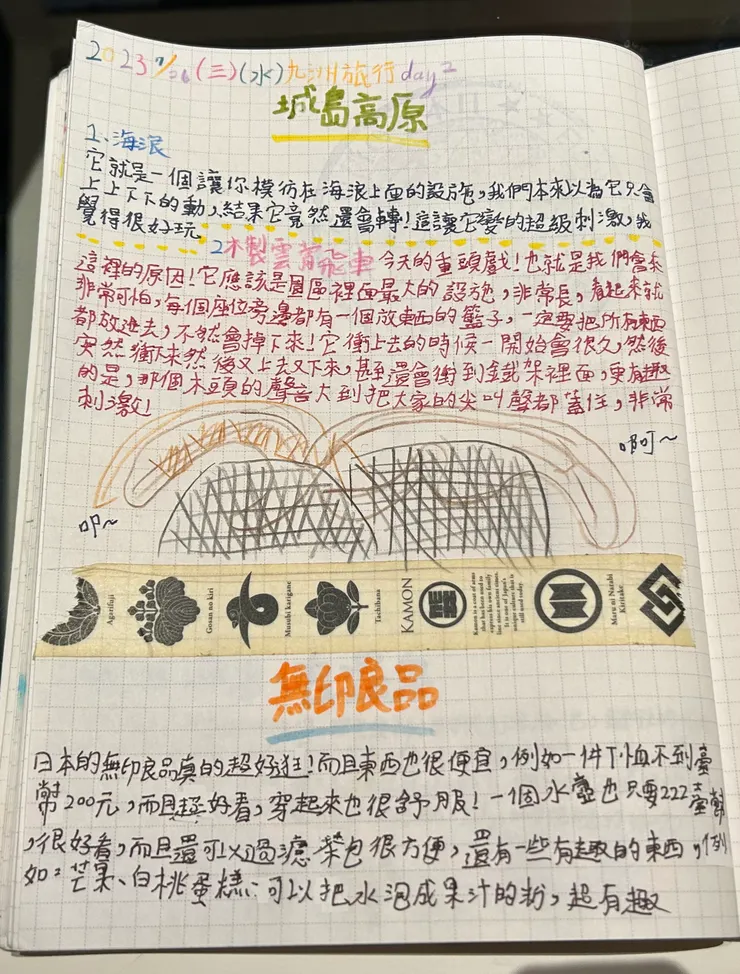 2023 7/26(三)(水)九洲旅行day2
城島高原
1、海浪
它就是一個讓你模彷在海浪上面的設施,我們本來以為它只會
上上下下的動,結果它竟然還會轉!這讓它變的超級刺激,我
覺得很好玩
2木製雲霄飛車 今天的重頭戲!也就是我們會來
這裡的原因!它應該是園區裡面最大的設施,非常長,看起來就
非常可怕,每個座位旁邊都有一個放東西的籃子,一定要把所有東西
都放進去,不然會掉下來!它衝上去的時候一開始會很久,然後
突然衝下來然後又上去又下來,甚至還會衝到鐵架裡面,更有趣
的是,那個木頭的聲音大到把大家的尖叫聲都蓋住,非常
刺激!
啊~
叩~
Agarifuji
Gosan no kiri
Musubi karigane
Tachibana
KAMON
Kamon is a coat of arms
that has been used to
express the own family
line since ancient times.
It is one of Japan's
unique culture that is
still used today.
Maru ni Narabi
Kiritake
無印良品
日本的無印良品真的超好逛!而且東西也很便宜,例如一件T恤不到臺
幣200元,而且超好看,穿起來也很舒服!一個水壺也只要222臺幣
,很好看,而且還可以過濾茶包很方便,還有一些有趣的東西,例
如:芒果、白桃蛋糕;可以把水泡成果汁的粉,超有趣